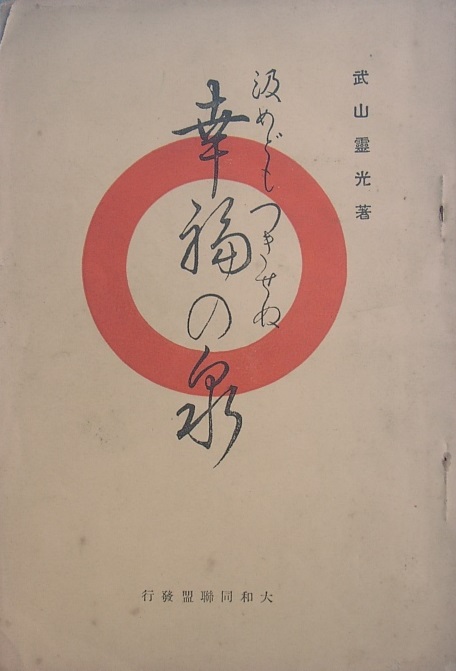 武山靈光著
汲めどもつきせぬ
幸福の泉
大和同聯盟發行